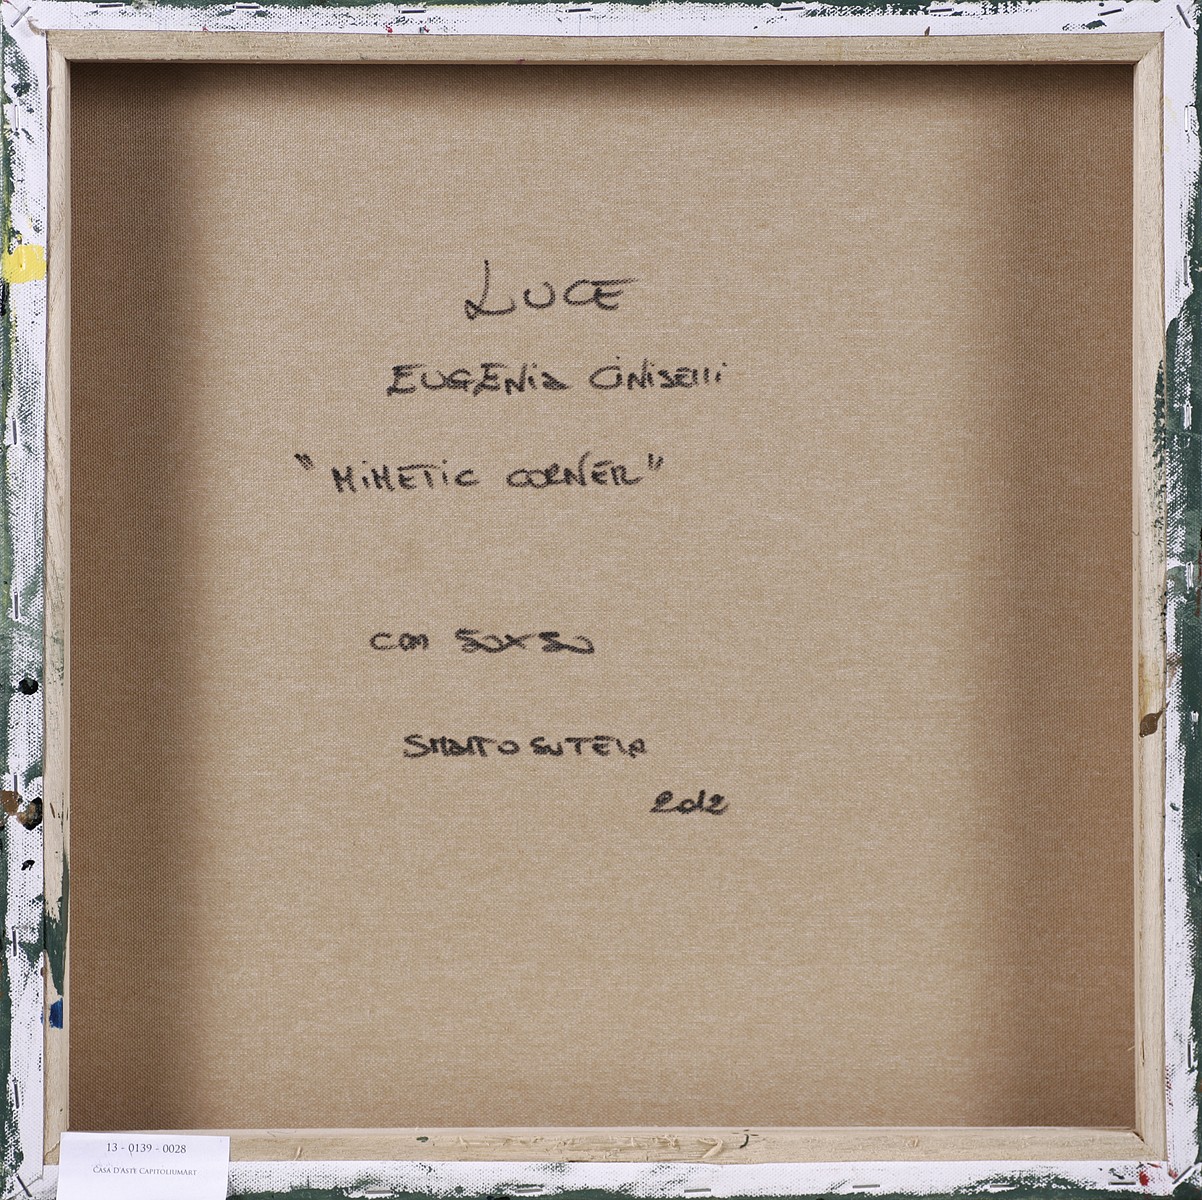 LUCE
EUGENIA CINISELLI
"MIMETIC CORNER"
cm 50x50
SMALTO SU TELA
2012
13 - 0139 - 0028
CASA D'ASTE CAPITOLIUMART